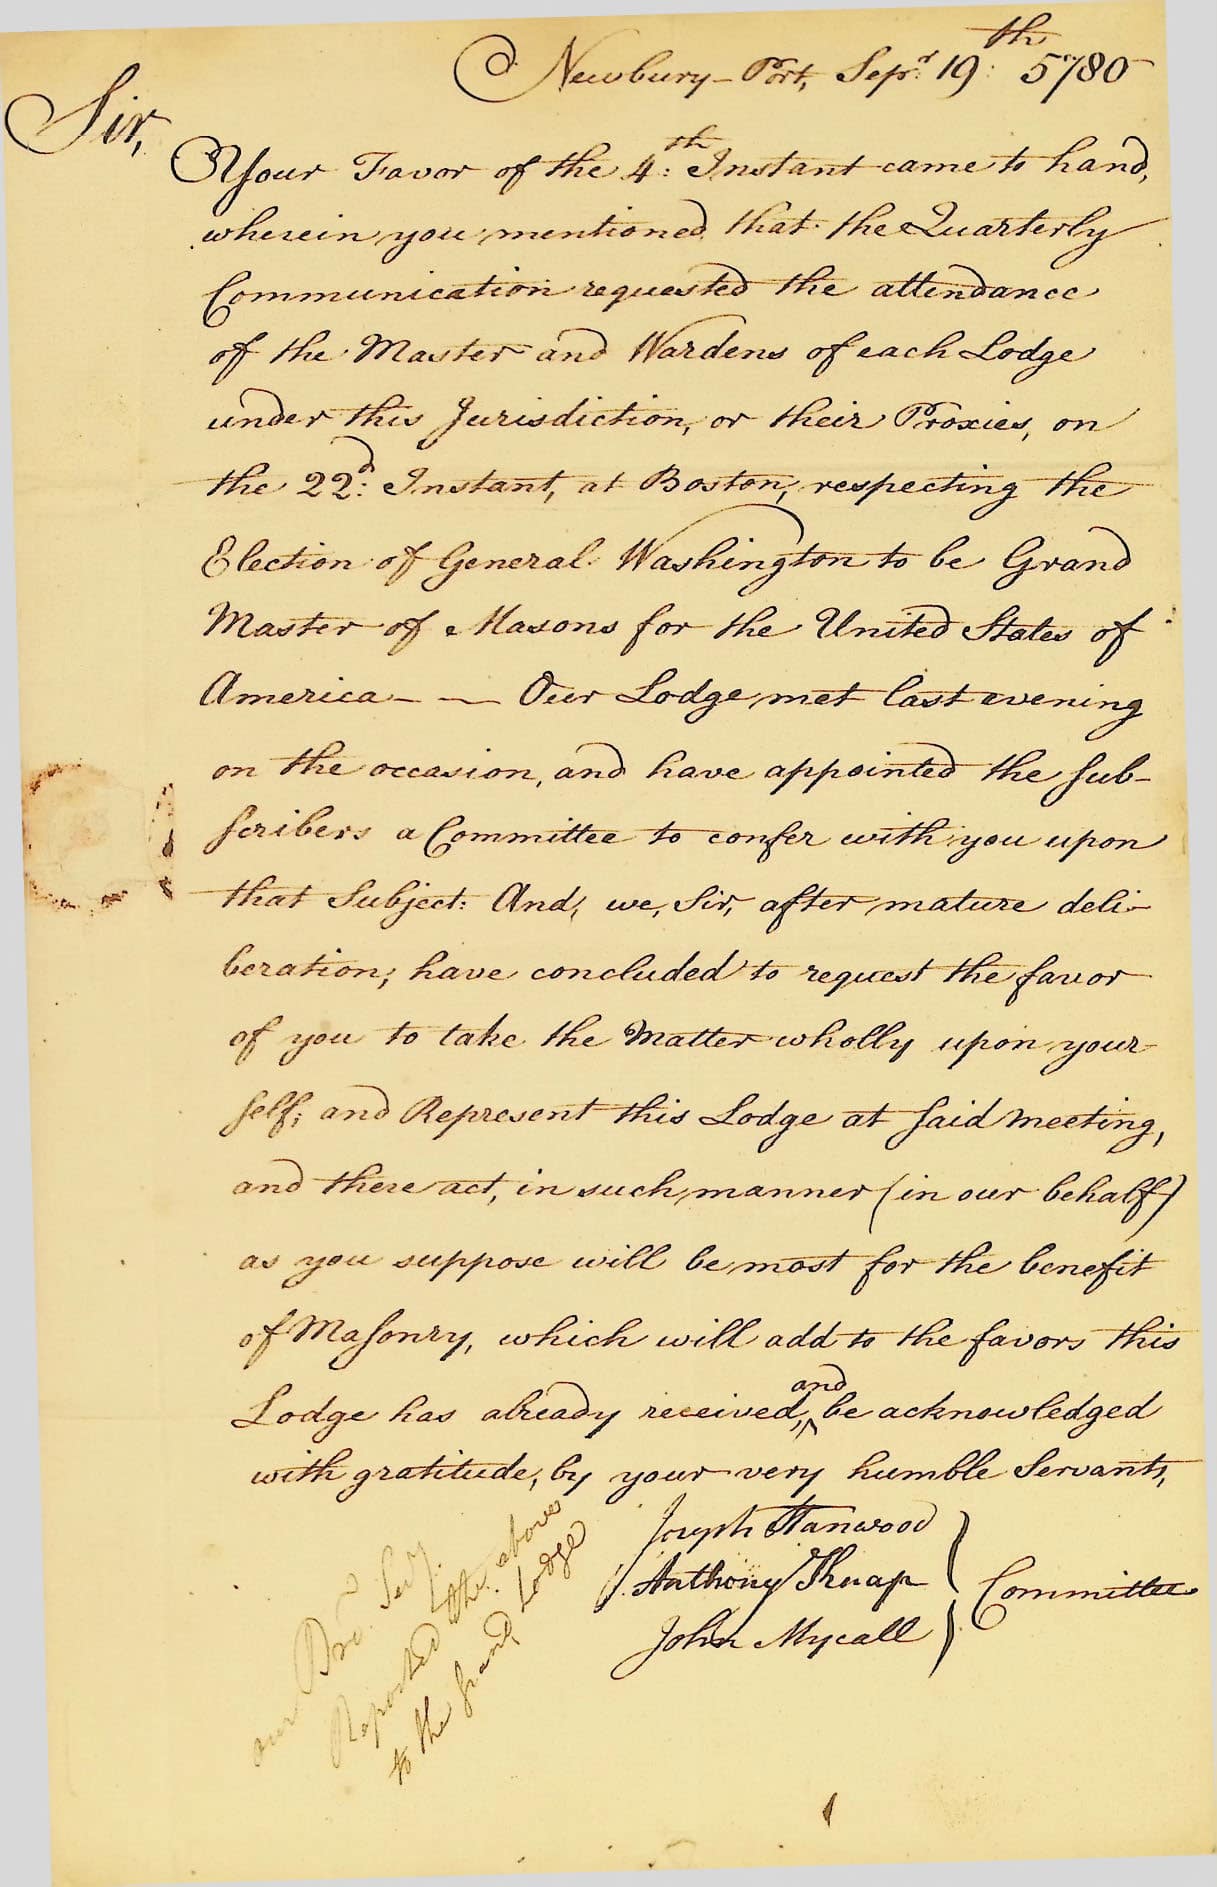 Newbury-Port, Sepr. 19th: 5780
Sir,
Your Favor of the 4th: Instant came to hand,
wherein you mentioned that the Quarterly
Communication requested the attendance
of the Master and Wardens of each Lodge
under this Jurisdiction, or their Proxies, on
the 22d: Instant, at Boston, respecting the
Election of General Washington to be Grand
Master of Masons for the United States of
America - — Our Lodge met last evening
on the occasion, and have appointed the sub-
scribers a Committee to confer with you upon
that Subject: And, we, Sir, after mature deli-
beration; have concluded to request the favor
of you to take the Matter wholly upon your-
self; and Represent this Lodge at said meeting,
and there act, in such manner (in our behalf)
as you suppose will be most for the benefit
of Masonry, which will add to the favors this
Lodge has already received, and be acknowledged
with gratitude, by your very humble Servants,
Joseph Stanwood
Anthony Knap
John Mycall
Committee
our Bro. Secy.
Reported the above
to the Grand Lodge